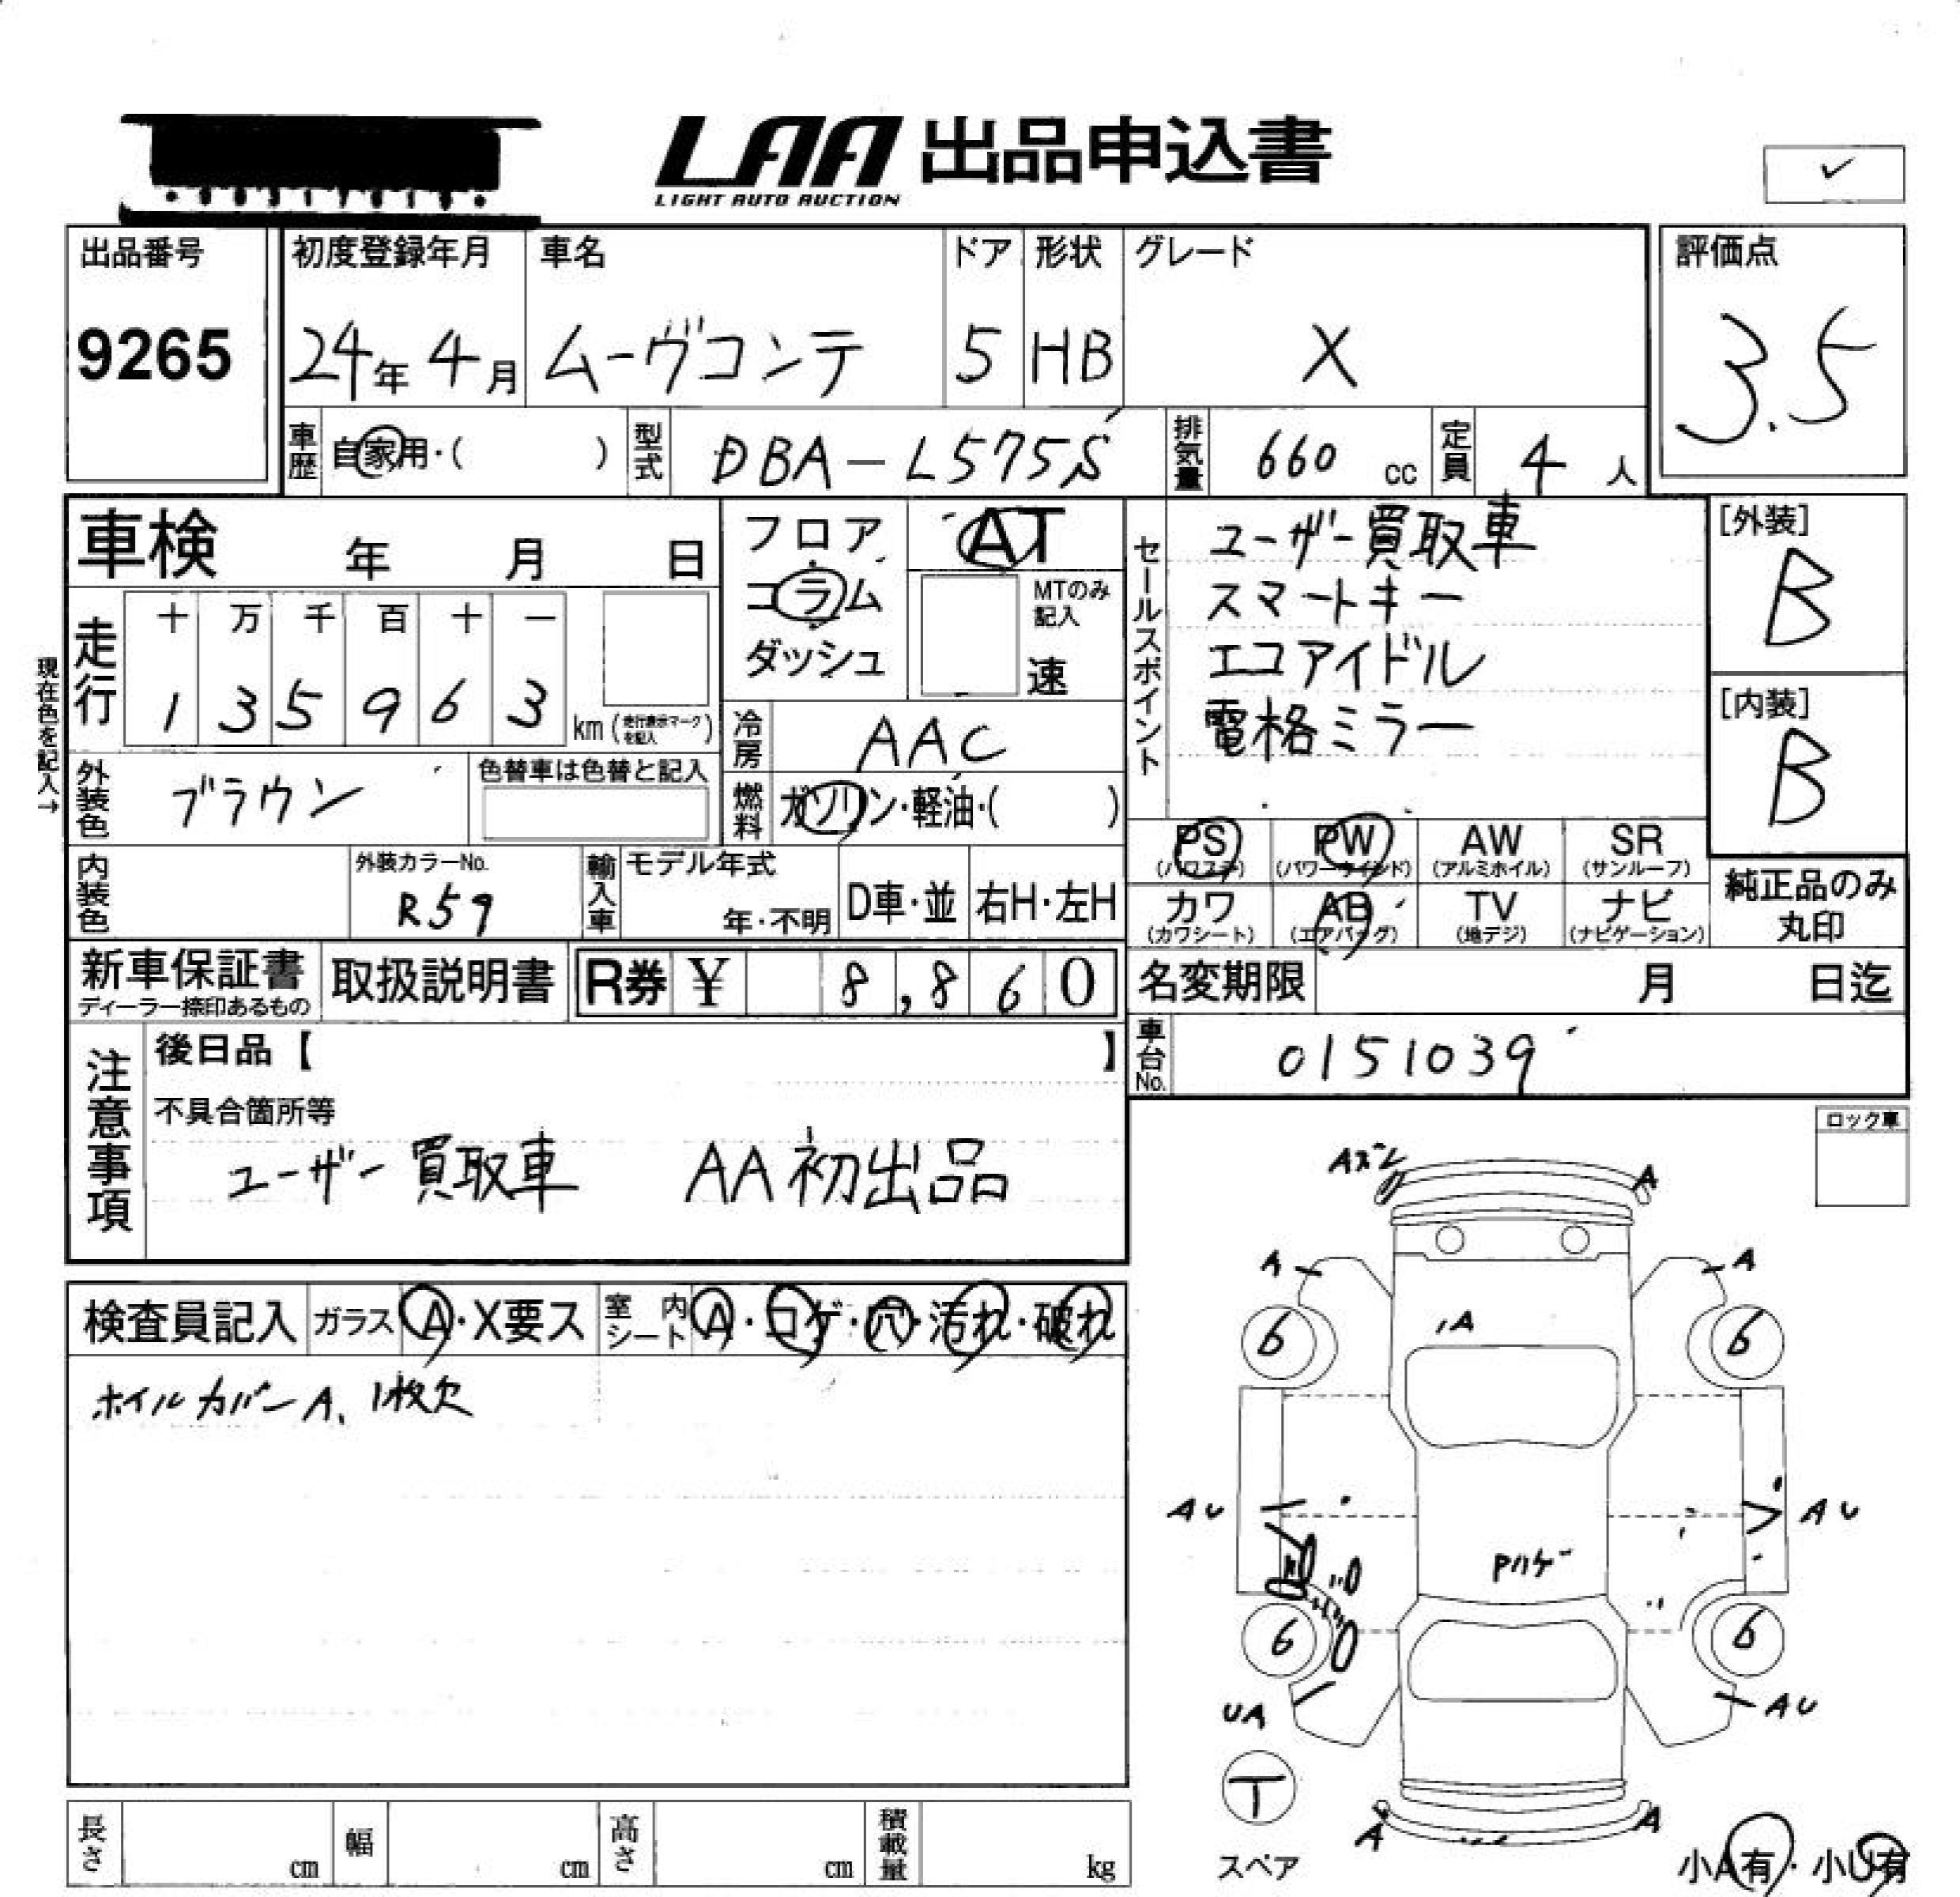 LAA 出品申込書
LIGHT AUTO AUCTION
✓
出品番号
9265
初度登録年月
24年 4月
車名
ムーヴコンテ
ドア
5
形状
HB
グレード
X
評価点
3.5
車歴 自家用・( )
型式 DBA-L575S
排気量 660 cc
定員 4 人
車検 年 月 日
走行
十 万 千 百 十 一
1 3 5 9 6 3 km(走行表示マークを記入)
現在色を記入→
外装色 ブラウン
色替車は色替と記入
内装色
外装カラーNo.
R59
フロア
コラム
ダッシュ
AT
MTのみ記入
速
冷房 AAC
燃料 ガソリン・軽油・( )
輸入車
モデル年式
年・不明
D車・並
右H・左H
セールスポイント
ユーザー買取車
スマートキー
エコアイドル
電格ミラー
[外装]
B
[内装]
B
PS (パワステ)
PW (パワーウインド)
AW (アルミホイル)
SR (サンルーフ)
カワ (カワシート)
AB (エアバッグ)
TV (地デジ)
ナビ (ナビゲーション)
純正品のみ
丸印
新車保証書
ディーラー捺印あるもの
取扱説明書
R券 ¥ 8,860
名変期限 月 日迄
車台No. 0151039
注意事項
後日品【 】
不具合箇所等
ユーザー買取車 AA初出品
ロック車
検査員記入
ガラス A・X要ス
室内シート A・コゲ・穴・汚れ・破れ
ホイルカバーA、1枚欠
A
A
A
A
6
6
AU
AU
Pハゲ
6
6
UA
AU
T
スペア
A
A
小A有・小U有
長さ cm
幅 cm
高さ cm
積載量 kg